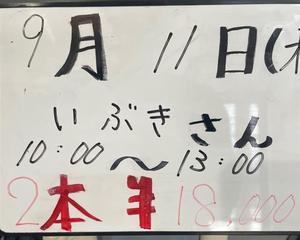 9月11日(木
いぶきさん
10:00〜13:00
2本半 18,000